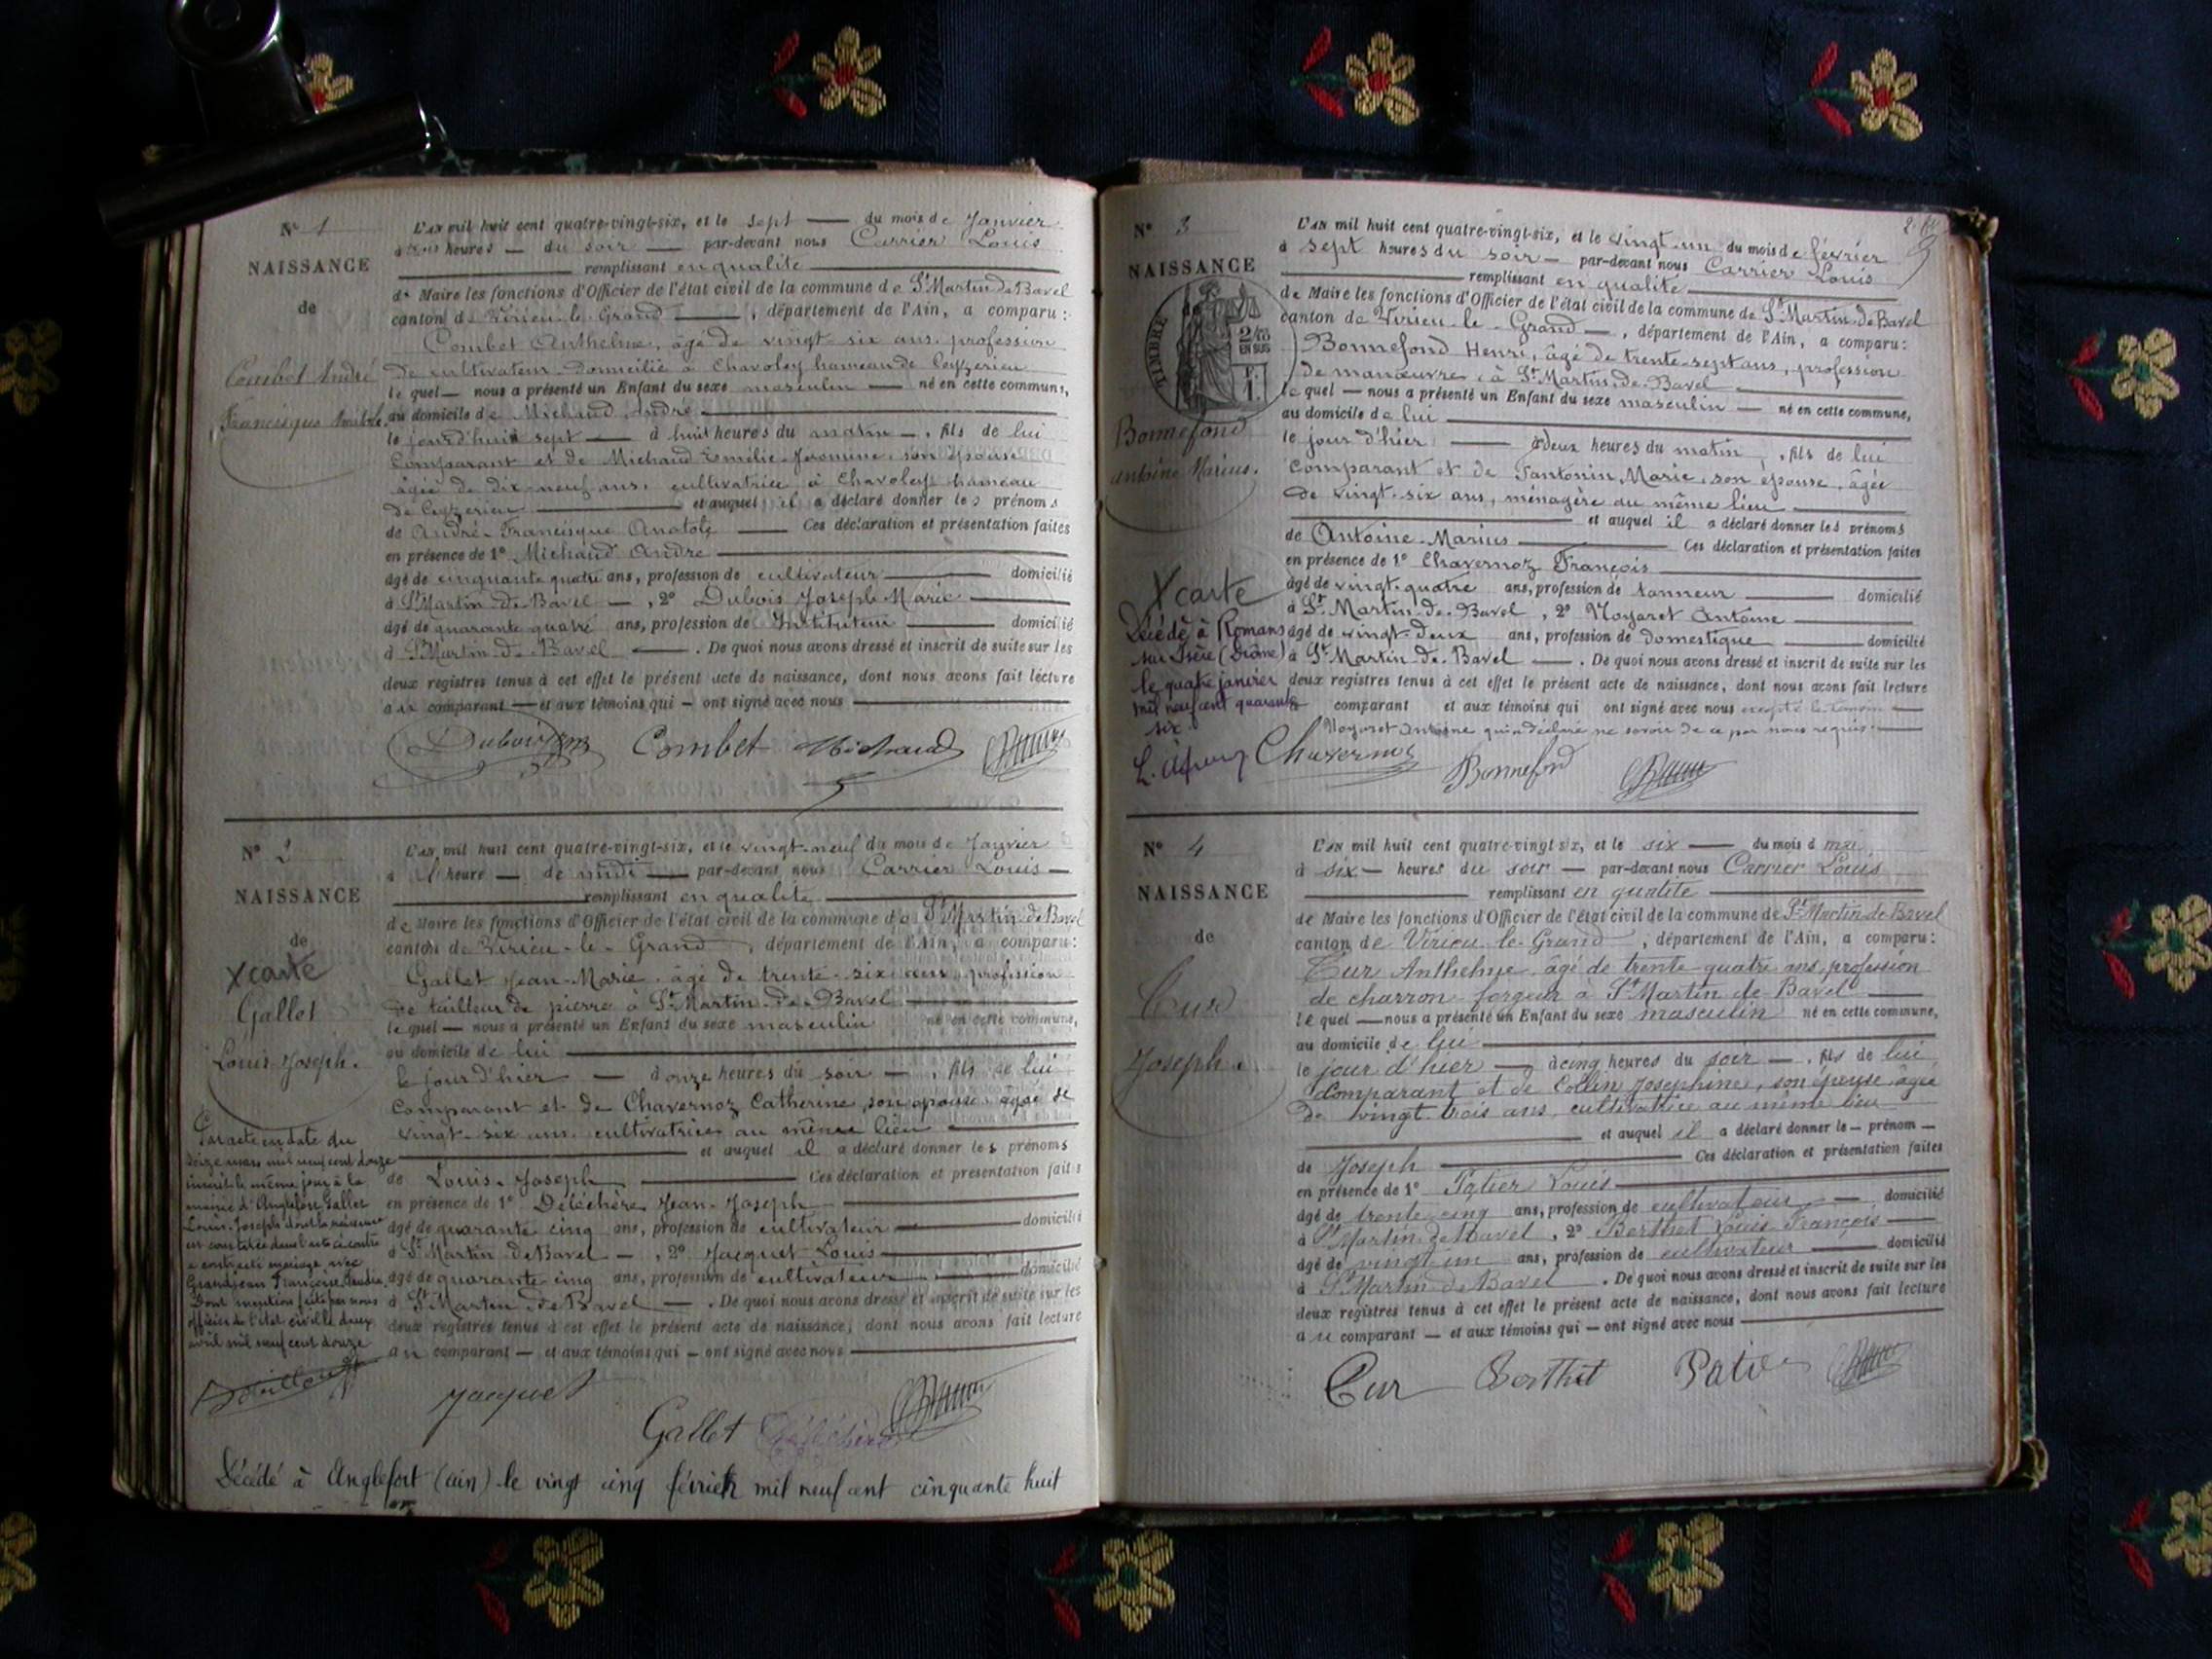 N° 1
NAISSANCE
de
Combet André
Francisque Anatole
L'AN mil huit cent quatre-vingt-six, et le sept — du mois de Janvier
à trois heures — du soir — par-devant nous Carrier Louis
remplissant en qualité
de Maire les fonctions d'Officier de l'état civil de la commune de St Martin de Bavel
canton de Virieu-le-Grand —, département de l'Ain, a comparu:
Combet Anthelme, âgé de vingt-six ans, profession
de cultivateur domicilié à Chavoley hameau de Ceyzerieu
lequel — nous a présenté un Enfant du sexe masculin — né en cette commune,
au domicile de Michaud, André
le jourd'hui sept — à huit heures du matin —, fils de lui
comparant et de Michaud Emélie-Jeromine, son épouse
âgée de dix-neuf ans, cultivatrice à Chavoley hameau
de Ceyzerieu — et auquel il a déclaré donner les prénoms
de André-Francisque Anatole — Ces déclaration et présentation faites
en présence de 1° Michaud André
âgé de cinquante quatre ans, profession de cultivateur — domicilié
à St Martin-de-Bavel —, 2° Dubois Joseph Marie
âgé de quarante quatre ans, profession de Instituteur — domicilié
à St Martin-de-Bavel —. De quoi nous avons dressé et inscrit de suite sur les
deux registres tenus à cet effet le présent acte de naissance, dont nous avons fait lecture
au comparant — et aux témoins qui — ont signé avec nous
Dubois Combet Michaud
N° 2
NAISSANCE
de
X carte
Gallet
Louis-Joseph.
L'AN mil huit cent quatre-vingt-six, et le vingt-neuf du mois de Janvier
à 1 heure — de midi — par-devant nous Carrier Louis —
remplissant en qualité
de Maire les fonctions d'Officier de l'état civil de la commune de St Martin de Bavel
canton de Virieu-le-Grand, département de l'Ain, a comparu:
Gallet Jean-Marie, âgé de trente-six ans, profession
de tailleur de pierre à St Martin-de-Bavel
lequel — nous a présenté un Enfant du sexe masculin né en cette commune,
au domicile de lui
le jour d'hier — à onze heures du soir —, fils de lui
comparant et de Chavernoz Catherine, son épouse âgée de
vingt-six ans, cultivatrice au même lieu
et auquel il a déclaré donner les prénoms
de Louis-Joseph — Ces déclaration et présentation faites
en présence de 1° Déléchère Jean-Joseph
âgé de quarante cinq ans, profession de cultivateur — domicilié
à St Martin de Bavel —, 2° Jacquet Louis
âgé de quarante cinq ans, profession de cultivateur — domicilié
à St Martin de Bavel —. De quoi nous avons dressé et inscrit de suite sur les
deux registres tenus à cet effet le présent acte de naissance, dont nous avons fait lecture
au comparant — et aux témoins qui — ont signé avec nous
Par acte en date du
seize mars mil neuf cent douze
inscrit le même jour à la
mairie d'Anglefort Gallet
Louis-Joseph dont la naissance
est constatée dans l'acte ci-contre
a contracté mariage avec
Grandjean Françoise
Dont mention faite par nous
officier de l'état civil le deux
avril mil neuf cent douze
Jacquet
Gallet Déléchère
Décédé à Anglefort (ain) le vingt cinq février mil neuf cent cinquante huit
N° 3
NAISSANCE
TIMBRE
2/10
EN SUS
Bonnefond
Antoine Marius.
L'AN mil huit cent quatre-vingt-six, et le vingt-un du mois de février
à sept heures du soir — par-devant nous Carrier Louis
remplissant en qualité
de Maire les fonctions d'Officier de l'état civil de la commune de St Martin-de-Bavel
canton de Virieu-le-Grand —, département de l'Ain, a comparu:
Bonnefond Henri, âgé de trente-sept ans, profession
de manœuvre, à St Martin-de-Bavel
lequel — nous a présenté un Enfant du sexe masculin — né en cette commune,
au domicile de lui
le jour d'hier — à deux heures du matin, fils de lui
comparant et de Tantonin, Marie, son épouse, âgée
de vingt-six ans, ménagère au même lieu
et auquel il a déclaré donner les prénoms
de Antoine-Marius — Ces déclaration et présentation faites
en présence de 1° Chavernoz François
âgé de vingt-quatre ans, profession de tanneur — domicilié
à St Martin-de-Bavel, 2° Noyaret Antoine
âgé de vingt-deux ans, profession de domestique — domicilié
à St Martin-de-Bavel —. De quoi nous avons dressé et inscrit de suite sur les
deux registres tenus à cet effet le présent acte de naissance, dont nous avons fait lecture
comparant et aux témoins qui ont signé avec nous excepté le témoin
Noyaret Antoine qui a déclaré ne savoir de ce par nous requis.
X carte
Décédé à Romans
sur Isère (Drôme)
le quatre janvier
mil neuf cent quarante
six.
Chavernoz Bonnefond
N° 4
NAISSANCE
de
Cur
Joseph.
L'AN mil huit cent quatre-vingt-six, et le six — du mois d mai
à six — heures du soir — par-devant nous Carrier Louis
remplissant en qualité
de Maire les fonctions d'Officier de l'état civil de la commune de St Martin de Bavel
canton de Virieu-le-Grand, département de l'Ain, a comparu:
Cur Anthelme âgé de trente-quatre ans, profession
de charron-forgeur à St Martin de Bavel
lequel — nous a présenté un Enfant du sexe masculin né en cette commune,
au domicile de lui
le jour d'hier — à cinq heures du soir —, fils de lui
comparant et de Collin Joséphine, son épouse âgée
de vingt-trois ans, cultivatrice au même lieu
et auquel il a déclaré donner le — prénom —
de Joseph — Ces déclaration et présentation faites
en présence de 1° Patier Louis
âgé de trente-cinq ans, profession de cultivateur — domicilié
à St Martin de Bavel, 2° Berthet Louis François
âgé de vingt-un ans, profession de cultivateur — domicilié
à St Martin de Bavel —. De quoi nous avons dressé et inscrit de suite sur les
deux registres tenus à cet effet le présent acte de naissance, dont nous avons fait lecture
au comparant — et aux témoins qui — ont signé avec nous
Cur Berthet Patier